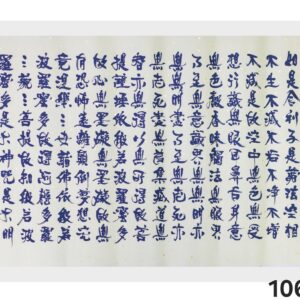 如是舍利子是諸法空相
不生不滅不垢不淨不增
不減是故空中無色無受
想行識無眼耳鼻舌身意
無色聲香味觸法無眼界
乃至無意識界無無明亦
無無明盡乃至無老死亦
無老死盡無苦集滅道無
智亦無得以無所得故菩
提薩埵依般若波羅蜜多
故心無罣礙無罣礙故無
有恐怖遠離顛倒夢想究
竟涅槃三世諸佛依般若
波羅蜜多故得阿耨多羅
三藐三菩提故知般若波
羅蜜多是大神咒是大明
106